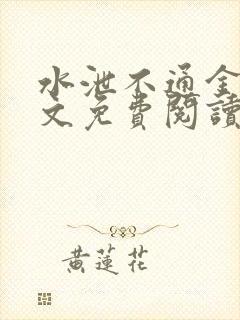 水泄不通全
文免費閱讀
黄蓮花